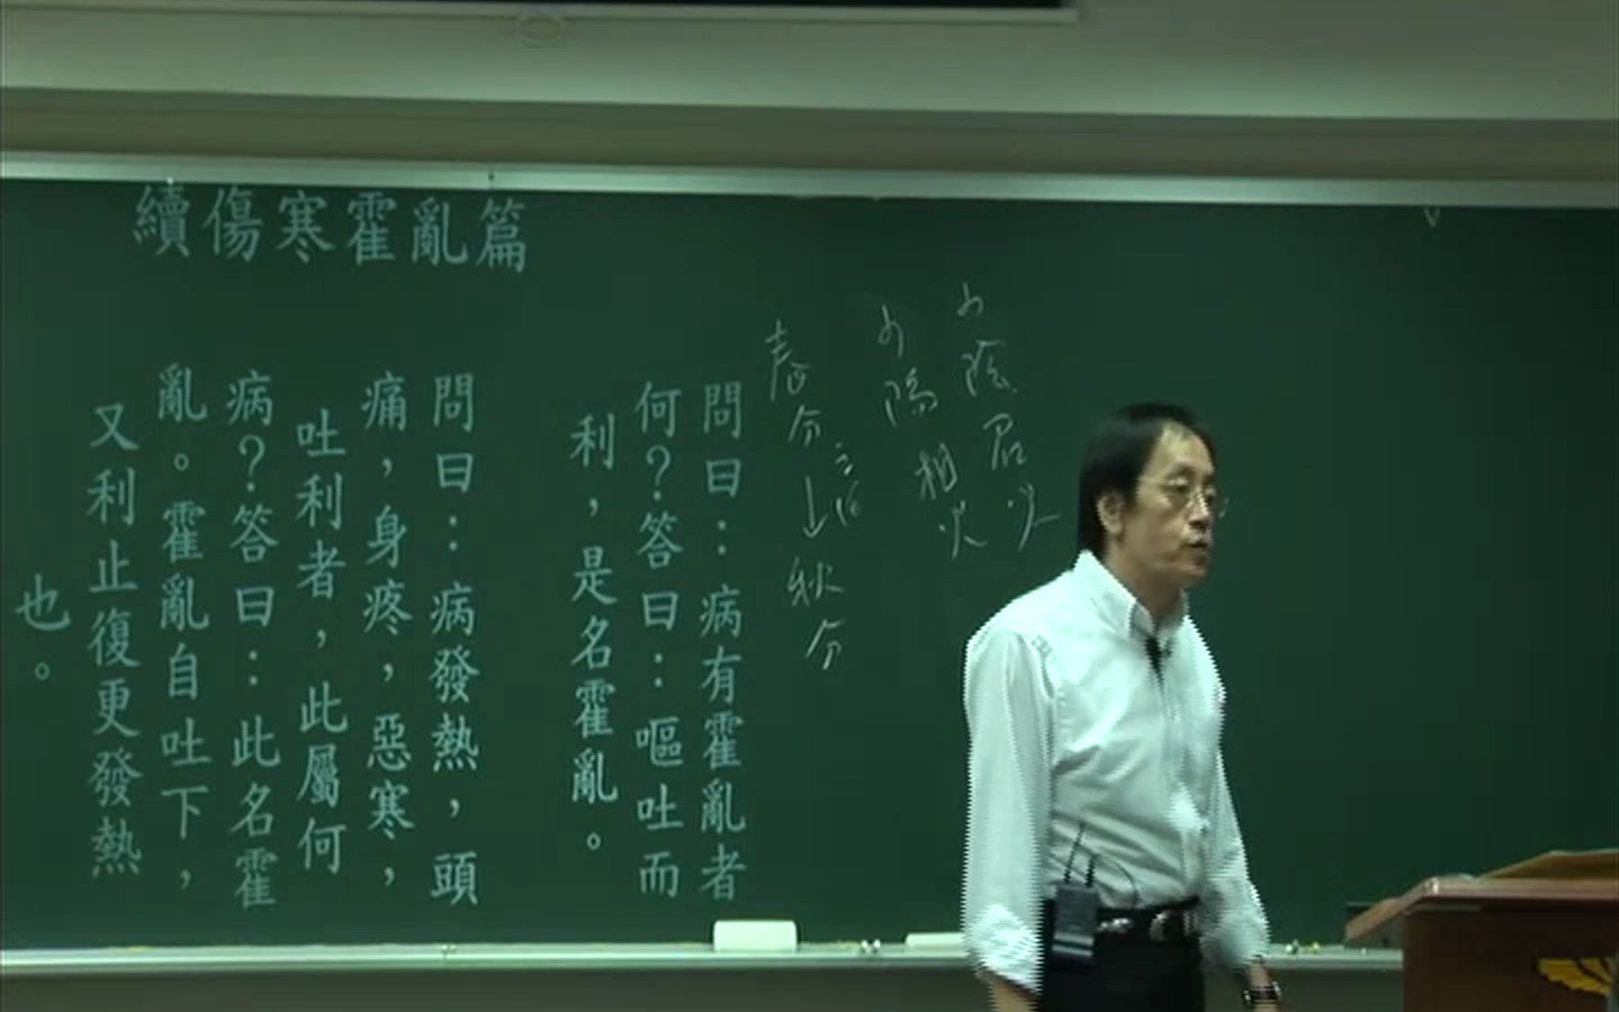 續傷寒霍亂篇
少陰君火
少陽相火
春分
↓
秋分
問曰：病有霍亂者
何？答曰：嘔吐而
利，是名霍亂。
問曰：病發熱，頭
痛，身疼，惡寒，
吐利者，此屬何
病？答曰：此名霍
亂。霍亂自吐下，
又利止復更發熱
也。